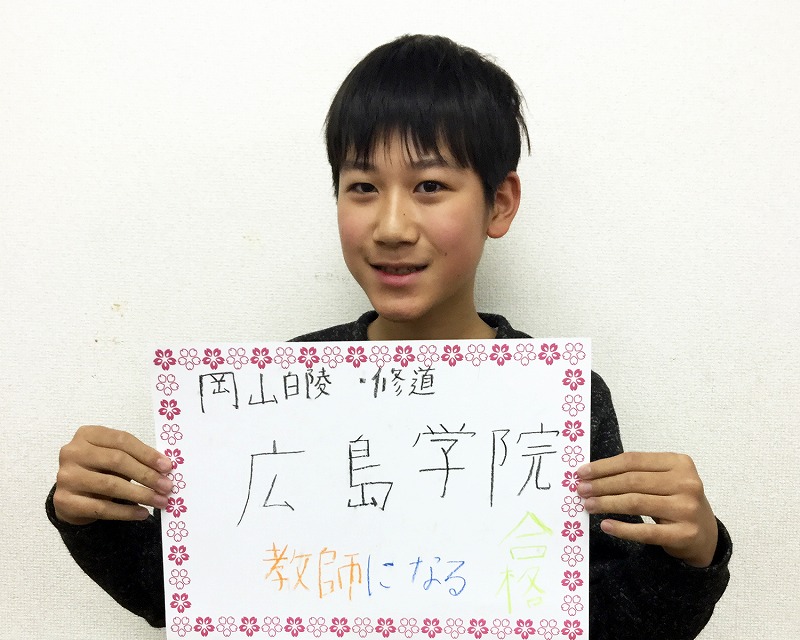 岡山白陵・修道
広島学院
合格
教師になる